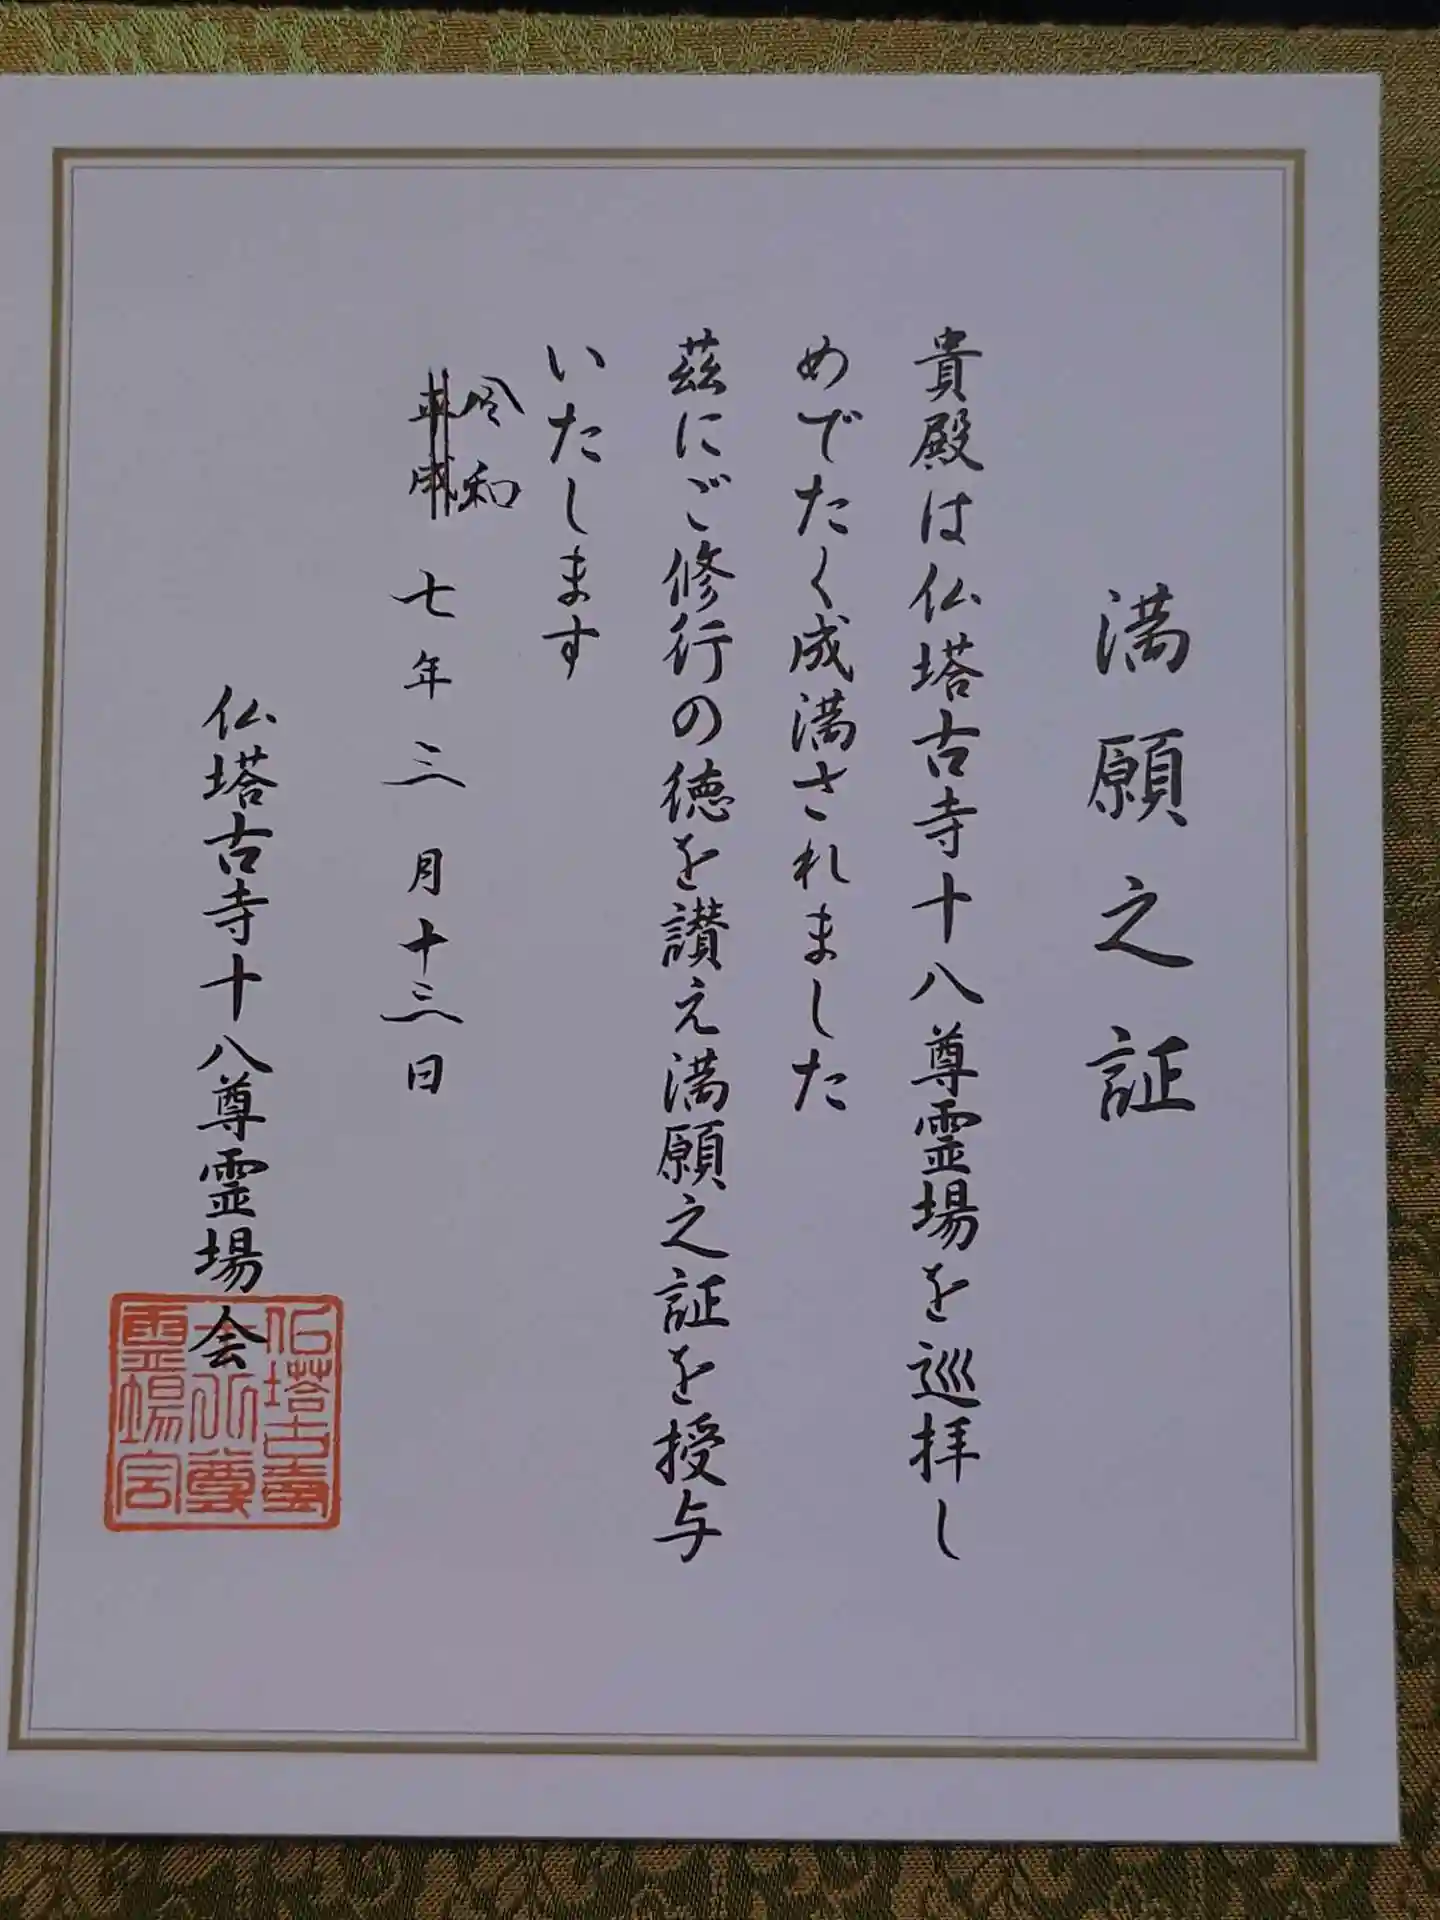 満願之証
貴殿は仏塔古寺十八尊霊場を巡拝し
めでたく成満されました
茲にご修行の徳を讃え満願之証を授与
いたします
令和
平成 七年三月十三日
仏塔古寺十八尊霊場会
仏塔古寺
十八尊
霊場